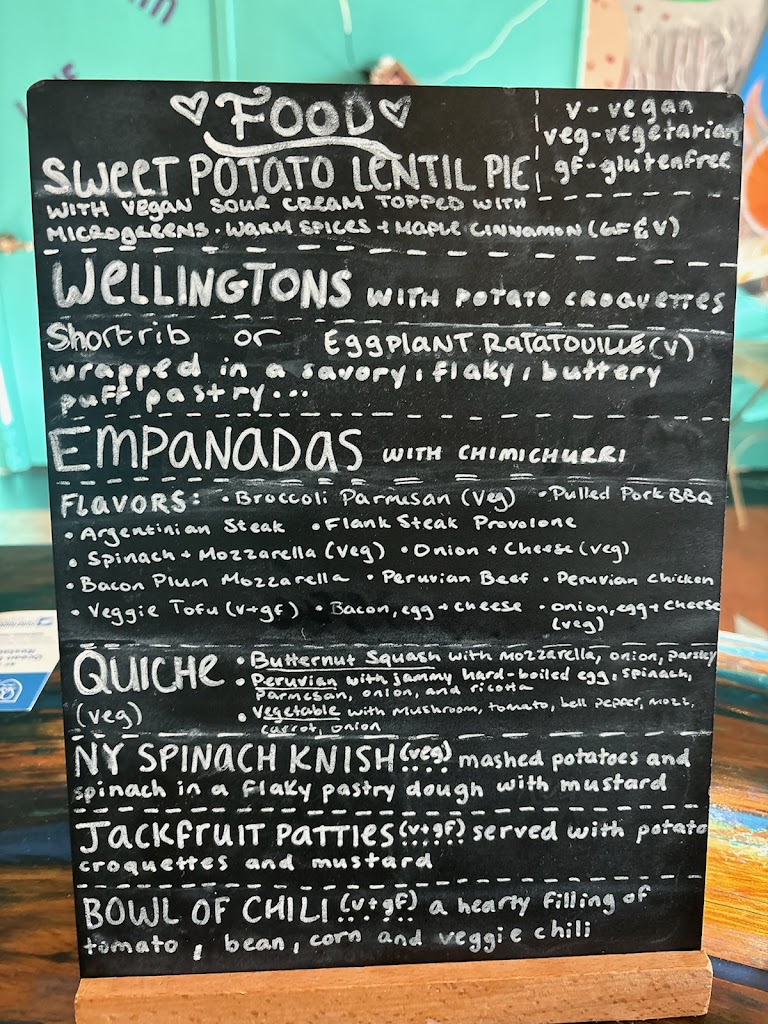 FOOD
v - vegan
veg - vegetarian
gf - glutenfree
SWEET POTATO LENTIL PIE
WITH VEGAN SOUR CREAM TOPPED WITH
MICROGREENS · WARM SPICES + MAPLE CINNAMON (GF & V)
WELLINGTONS WITH POTATO CROQUETTES
Shortrib or EGGPLANT RATATOUILLE (V)
wrapped in a savory, flaky, buttery
puff pastry...
EMPANADAS WITH CHIMICHURRI
FLAVORS: • Broccoli Parmesan (Veg) • Pulled Pork BBQ
• Argentinian Steak • Flank Steak Provolone
• Spinach + Mozzarella (Veg) • Onion + Cheese (veg)
• Bacon Plum Mozzarella • Peruvian Beef • Peruvian chicken
• Veggie Tofu (V+gf) • Bacon, egg + cheese • onion, egg + cheese
(veg)
QUICHE • Butternut Squash with mozzarella, onion, parsley
• Peruvian with jammy hard-boiled egg, spinach,
parmesan, onion, and ricotta
(veg) • Vegetable with mushroom, tomato, bell pepper, mozz,
carrot, onion
NY SPINACH KNISH (veg) mashed potatoes and
spinach in a flaky pastry dough with mustard
JACKFRUIT PATTIES (v+gf) served with potato
croquettes and mustard
BOWL OF CHILI (v+gf) a hearty filling of
tomato, bean, corn and veggie chili